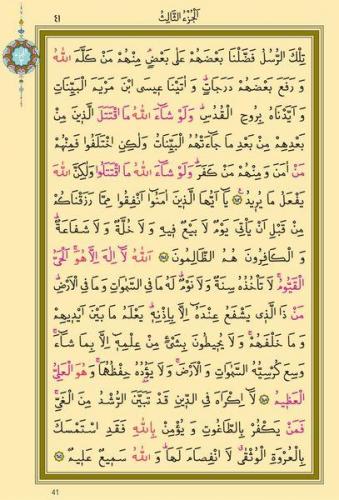 ٤١ اَلْجُزْءُ الثَّالِثُ
تِلْكَ الرُّسُلُ فَضَّلْنَا بَعْضَهُمْ عَلٰى بَعْضٍۢ مِنْهُمْ مَنْ كَلَّمَ اللّٰهُ
وَ رَفَعَ بَعْضَهُمْ دَرَجَاتٍۜ وَ اٰتَيْنَا عٖيسَى ابْنَ مَرْيَمَ الْبَيِّنَاتِ
وَ اَيَّدْنَاهُ بِرُوحِ الْقُدُسِۜ وَلَوْ شَٓاءَ اللّٰهُ مَا اقْتَتَلَ الَّذٖينَ مِنْ
بَعْدِهِمْ مِنْ بَعْدِ مَا جَٓاءَتْهُمُ الْبَيِّنَاتُ وَلٰكِنِ اخْتَلَفُوا فَمِنْهُمْ
مَنْ اٰمَنَ وَ مِنْهُمْ مَنْ كَفَرَۜ وَلَوْ شَٓاءَ اللّٰهُ مَا اقْتَتَلُوا وَلٰكِنَّ اللّٰهَ
يَفْعَلُ مَا يُرٖيدُ ۟ يَٓا اَيُّهَا الَّذٖينَ اٰمَنُٓوا اَنْفِقُوا مِمَّا رَزَقْنَاكُمْ
مِنْ قَبْلِ اَنْ يَاْتِيَ يَوْمٌ لَا بَيْعٌ فٖيهِ وَ لَا خُلَّةٌ وَ لَا شَفَاعَةٌۜ
وَ الْكَافِرُونَ هُمُ الظَّالِمُونَ ۟ اَللّٰهُ لَٓا اِلٰهَ اِلَّا هُوَۚ اَلْحَيُّ
الْقَيُّومُۚ لَا تَاْخُذُهُ سِنَةٌ وَ لَا نَوْمٌۜ لَهُ مَا فِي السَّمٰوَاتِ وَ مَا فِي الْاَرْضِۜ
مَنْ ذَا الَّذٖي يَشْفَعُ عِنْدَهُٓ اِلَّا بِاِذْنِهٖۜ يَعْلَمُ مَا بَيْنَ اَيْدٖيهِمْ
وَ مَا خَلْفَهُمْۚ وَ لَا يُحٖيطُونَ بِشَيْءٍ مِنْ عِلْمِهٖٓ اِلَّا بِمَا شَٓاءَۚ
وَسِعَ كُرْسِيُّهُ السَّمٰوَاتِ وَ الْاَرْضَۚ وَ لَا يَؤُ۫دُهُ حِفْظُهُمَاۚ وَ هُوَ الْعَلِيُّ
الْعَظٖيمُ ۟ لَٓا اِكْرَاهَ فِي الدّٖينِ قَدْ تَبَيَّنَ الرُّشْدُ مِنَ الْغَيِّۚ
فَمَنْ يَكْفُرْ بِالطَّاغُوتِ وَ يُؤْمِنْ بِاللّٰهِ فَقَدِ اسْتَمْسَكَ
بِالْعُرْوَةِ الْوُثْقٰىۗ لَا انْفِصَامَ لَهَاۜ وَ اللّٰهُ سَمٖيعٌ عَلٖيمٌ ۟
41